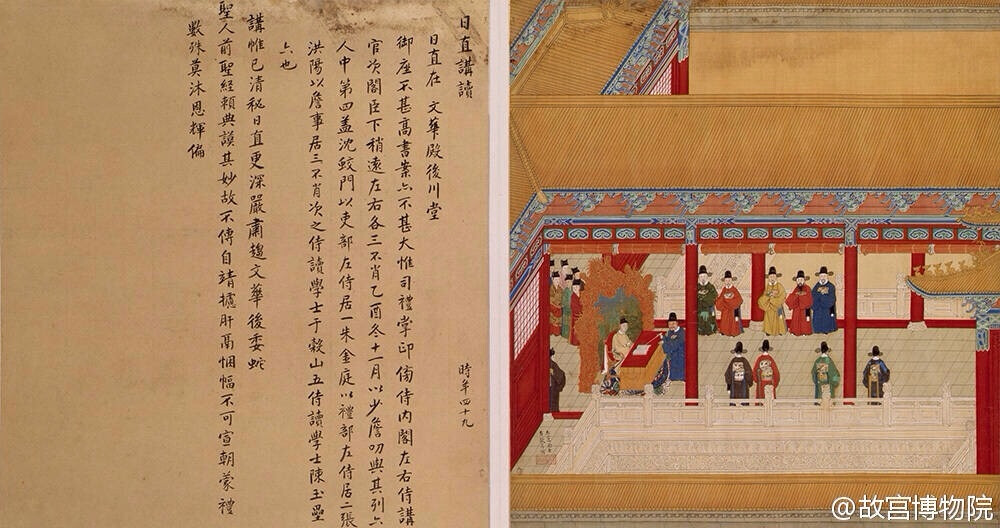 日直講讀
時年四十九
日直在 文華殿後川堂
御座不甚高書案亦不甚大惟司禮掌印傍侍內閣左右侍講
官次閣臣下稍遠左右各三不肖乙酉冬十一月以少詹叨與其列六
人中第四蓋沈蛟門以吏部左侍居一朱金庭以禮部左侍居二張
洪陽以詹事居三不肖次之侍讀學士于穀山五侍讀學士陳玉壘
六也
講帷已清秘日直更深嚴肅趨文華後委蛇
聖人前聖經賴典謨其妙故不傳自靖攄肝鬲悃愊不可宣朝蒙禮
數殊莫沐恩輝偏
@故宫博物院